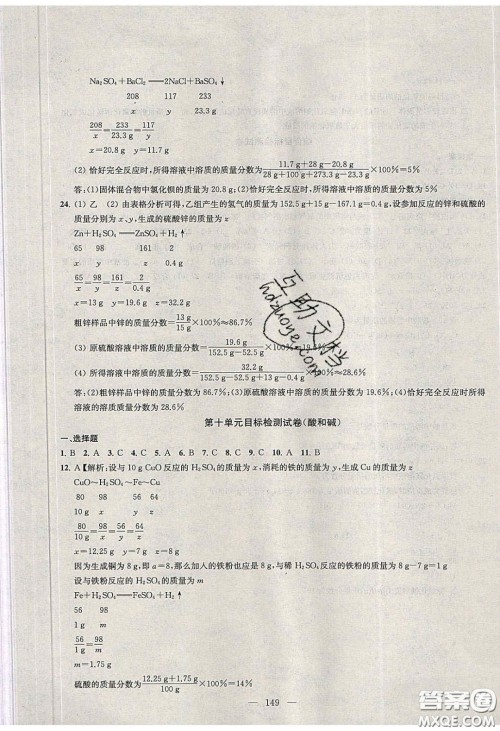 Na₂SO₄+BaCl₂══2NaCl+BaSO₄↓
208 117 233
x y 23.3 g
208/x=233/23.3 g=117/y
x=20.8 g y=11.7 g
(2) 恰好完全反应时,所得溶液中溶质的质量分数为 (11.7 g+28 g-20.8 g)/(28 g+100 g+273.3 g-23.3 g)×100%=5%
答:(1)固体混合物中氯化钡的质量为 20.8 g;(2)恰好完全反应时,所得溶液中溶质的质量分数为 5%
24. (1) 乙 (2) 由表格分析可得,乙组产生的氢气的质量为 152.5 g+15 g-167.1 g=0.4 g,设参加反应的锌和硫酸的
质量分别为 x、y,生成的硫酸锌的质量为 z
Zn+H₂SO₄══ZnSO₄+H₂↑
65 98 161 2
x y z 0.4 g
65/x=98/y=161/z=2/0.4 g
x=13 g y=19.6 g z=32.2 g
粗锌样品中锌的质量分数=13 g/15 g×100%≈86.7%
(3) 原硫酸溶液中溶质的质量分数=19.6 g/(152.5 g-52.5 g)×100%=19.6%
(4) 所得溶液中溶质的质量分数=32.2 g/(152.5 g-52.5 g+13 g-0.4 g)×100%≈28.6%
答:(2)粗锌样品中锌的质量分数为 86.7%;(3)原硫酸溶液中溶质的质量分数为 19.6%;(4)恰好完全反应时所得
溶液的溶质的质量分数为 28.6%
第十单元目标检测试卷(酸和碱)
一、选择题
1. B 2. A 3. C 4. B 5. A 6. C 7. B 8. D 9. C 10. A 11. B
12. A【解析:设与 10 g CuO 反应的 H₂SO₄ 的质量为 x,消耗的铁的质量为 y,生成 Cu 的质量为 z
CuO~H₂SO₄~Fe~Cu
80 98 56 64
10 g x y z
80/10 g=98/x=56/y=64/z
x=12.25 g y=7 g z=8 g
因为生成铜为 8 g,即 a=8,那么加入的铁粉也应是 8 g,与稀 H₂SO₄ 反应的铁粉的质量为 8 g-7 g=1 g
设与铁粉反应的硫酸的质量为 m
Fe+H₂SO₄══FeSO₄+H₂↑
56 98
1 g m
56/1 g=98/m
m=1.75 g
硫酸的质量分数为 (12.25 g+1.75 g)/100 g×100%=14%
— 149 —
互助文档
hdzuoye.com
答案圈
MXQE.COM